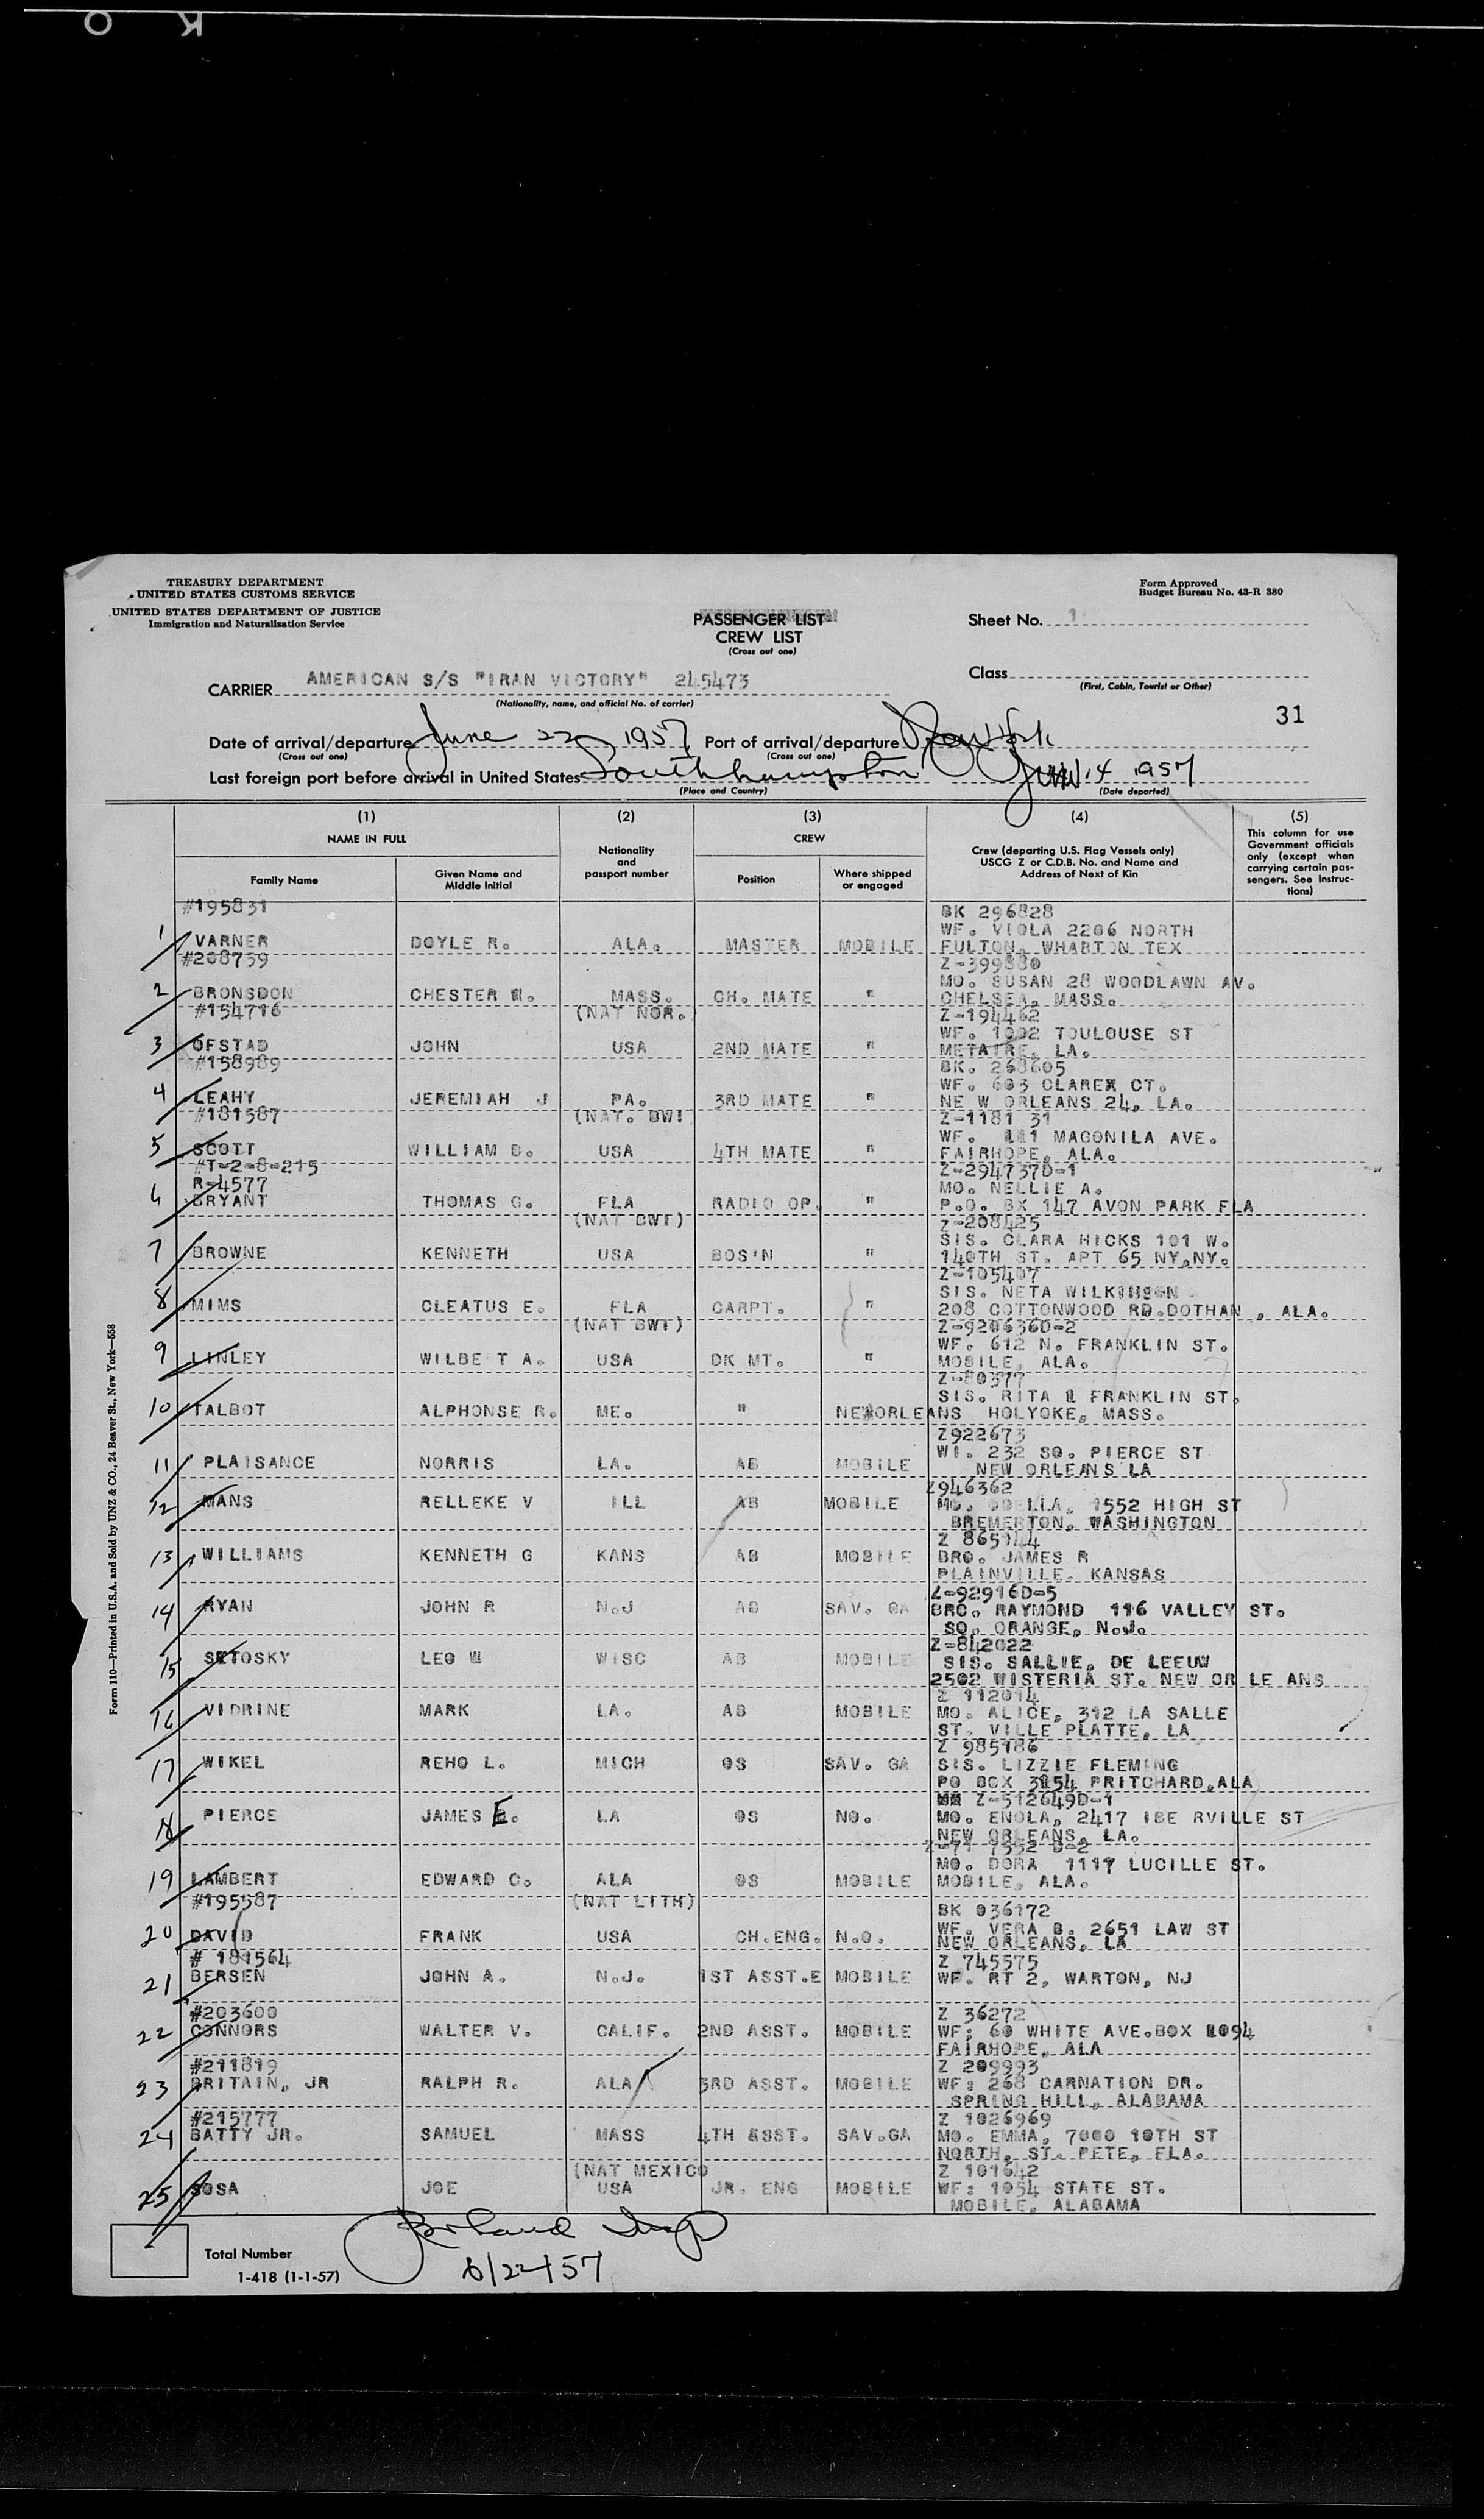 TREASURY DEPARTMENT
UNITED STATES CUSTOMS SERVICE
UNITED STATES DEPARTMENT OF JUSTICE
Immigration and Naturalization Service
Form Approved
Budget Bureau No. 43-R 380
PASSENGER LIST
CREW LIST
(Cross out one)
Sheet No. 1
CARRIER AMERICAN S/S "IRAN VICTORY" 245473
(Nationality, name, and official No. of carrier)
Class
(First, Cabin, Tourist or Other)
31
Date of arrival/departure June 22 1957 Port of arrival/departure New York
(Cross out one) (Cross out one)
Last foreign port before arrival in United States Southhampton Jun 14 1957
(Place and Country) (Date departed)
(1) (2) (3) (4) (5)
NAME IN FULL
Nationality and passport number
CREW
Crew (departing U.S. Flag Vessels only) USCG Z or C.D.B. No. and Name and Address of Next of Kin
This column for use Government officials only (except when carrying certain passengers. See Instructions)
Family Name Given Name and Middle Initial Position Where shipped or engaged
#195831 BK 296828
WF. VIOLA 2206 NORTH
1 VARNER DOYLE R. ALA. MASTER MOBILE FULTON, WHARTON TEX
#208759 Z-399880
MO. SUSAN 28 WOODLAWN AV.
2 BRONSDON CHESTER W. MASS. CH. MATE " CHELSEA, MASS.
#154716 (NAT NOR.) Z-194462
WF. 1002 TOULOUSE ST
3 OFSTAD JOHN USA 2ND MATE " METAIRE, LA.
#158989 BK. 268605
WF. 603 CLAREX CT.
4 LEAHY JEREMIAH J PA. 3RD MATE " NE W ORLEANS 24, LA.
#181587 (NAT. BWI Z-1181 31
WF. 111 MAGONILA AVE.
5 SCOTT WILLIAM B. USA 4TH MATE " FAIRHOPE, ALA.
#T-2-8-215 Z-294737D-1
R-4577 MO. NELLIE A.
6 BRYANT THOMAS G. FLA RADIO OP. " P.O. BX 147 AVON PARK FLA
(NAT BWI) Z-208425
SIS. CLARA HICKS 101 W.
7 BROWNE KENNETH USA BOS'N " 140TH ST. APT 65 NY,NY.
Z-105407
SIS. NETA WILKINSON
8 MIMS CLEATUS E. FLA CARPT. " 208 COTTONWOOD RD.DOTHAN , ALA.
(NAT BWI) Z-920636D-2
WF. 612 N. FRANKLIN ST.
9 LINLEY WILBE T A. USA DK MT. " MOBILE, ALA.
Z-80377
SIS. RITA FRANKLIN ST.
10 TALBOT ALPHONSE R. ME. " NEWORLEANS HOLYOKE, MASS.
Z922673
WI. 232 SO. PIERCE ST
11 PLAISANCE NORRIS LA. AB MOBILE NEW ORLEANS LA
Z946362
12 MANS RELLEKE V ILL AB MOBILE MO. 1552 HIGH ST
BREMERTON, WASHINGTON
Z 865144
13 WILLIAMS KENNETH G KANS AB MOBILE BRO. JAMES R
PLAINVILLE, KANSAS
Z-92916D-5
14 RYAN JOHN R N.J AB SAV. GA BRO. RAYMOND 116 VALLEY ST.
SO. ORANGE, N.J.
Z-842022
15 SETOSKY LEO W WISC AB MOBILE SIS. SALLIE, DE LEEUW
2502 WISTERIA ST. NEW OR LE ANS
Z 112014
16 VIDRINE MARK LA. AB MOBILE MO. ALICE, 312 LA SALLE
ST. VILLE PLATTE, LA
Z 985186
17 WIKEL REHO L. MICH OS SAV. GA SIS. LIZZIE FLEMING
PO BOX 3254 PRITCHARD,ALA
Z-512649D-1
18 PIERCE JAMES E. LA OS NO. MO. ENOLA, 2417 IBE RVILLE ST
NEW ORLEANS, LA.
Z-71 7552 D-2
MO. DORA 1117 LUCILLE ST.
19 LAMBERT EDWARD C. ALA OS MOBILE MOBILE, ALA.
#195587 (NAT LITH) BK 036172
WF. VERA B. 2651 LAW ST
20 DAVID FRANK USA CH.ENG. N.O. NEW ORLEANS, LA
# 181564 Z 745575
21 BERSEN JOHN A. N.J. 1ST ASST.E MOBILE WF. RT 2, WARTON, NJ
#203600 Z 36272
22 CONNORS WALTER V. CALIF. 2ND ASST. MOBILE WF: 60 WHITE AVE.BOX 1094
FAIRHOPE, ALA
#211819 Z 209993
23 BRITAIN, JR RALPH R. ALA 3RD ASST. MOBILE WF: 268 CARNATION DR.
SPRING HILL, ALABAMA
#215777 Z 1026969
24 BATTY JR. SAMUEL MASS 4TH ASST. SAV.GA MO. EMMA, 7000 10TH ST
NORTH, ST. PETE, FLA.
(NAT MEXICO Z 101642
25 SOSA JOE USA JR. ENG MOBILE WF: 1054 STATE ST.
MOBILE, ALABAMA
Total Number
6/22/57
I-418 (1-1-57)
Form 110—Printed in U.S.A. and Sold by UNZ & CO., 24 Beaver St., New York—558